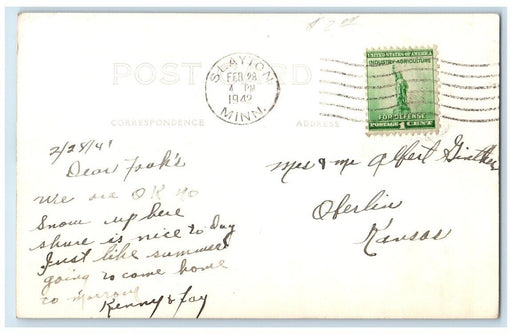 $ 2.00
POST CARD
CORRESPONDENCE
ADDRESS
SLAYTON
FEB 28
4 PM
1942
MINN.
UNITED STATES OF AMERICA
INDUSTRY-AGRICULTURE
FOR DEFENSE
POSTAGE 1 CENT
2/28/41
Dear Fook's
We are OK no
Snow up here
shure is nice to day
Just like summer
going to come home
to morrow
Kenny & Fay
Mrs & Mr Albert Ginther
Oberlin
Kansas